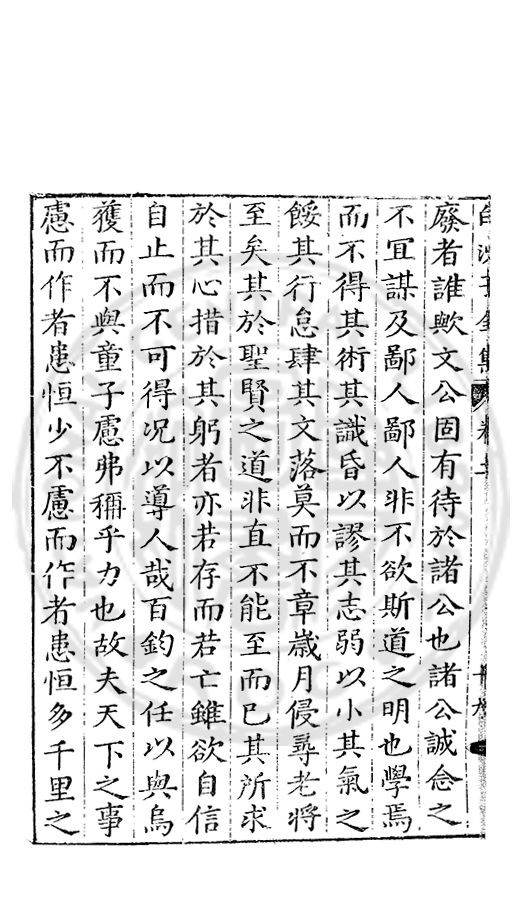 廢者誰歟文公固有待於諸公也諸公誠念之
不冝謀及鄙人鄙人非不欲斯道之明也學焉
而不得其術其識昏以謬其志弱以小其氣之
餒其行怠肆其文落莫而不章歲月侵尋老將
至矣其於聖賢之道非直不能至而已其所求
於其心措於其躬者亦若存而若亡雖欲自信
自止而不可得况以導人哉百鈞之任以與烏
獲而不與童子慮弗稱乎力也故夫天下之事
慮而作者患恒少不慮而作者患恒多千里之